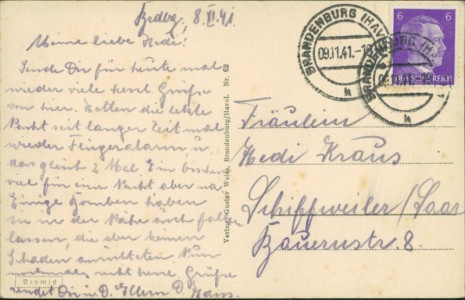 Brdbg, 8.XI.41.
Meine liebe Hedi!
Sende Dir für heute mal
wieder viele herzl. Grüße
von hier. Hatten die letzte
Nacht seit langer Zeit mal
wieder Fliegeralarm u.
das gleich 2 Mal. Ein bischen
viel für eine Nacht aber na
Einige Bomben haben
sie in der Nähe auch fallen
lassen, die aber keinen
Schaden anrichteten. Nun
nochmals recht herzl. Grüße
sendet Dir u. D. Eltern D. Hans.
Dromid
Verlag: Gustav Brandenburg/Havel. Nr. 62
BRANDENBURG (HAVEL)
09.11.41.-18
h
BRANDENBURG (H
h
6 6
DEUTSCHES REICH
Fräulein
Hedi Kraus
Schiffweiler/Saar
Bauernstr. 8.